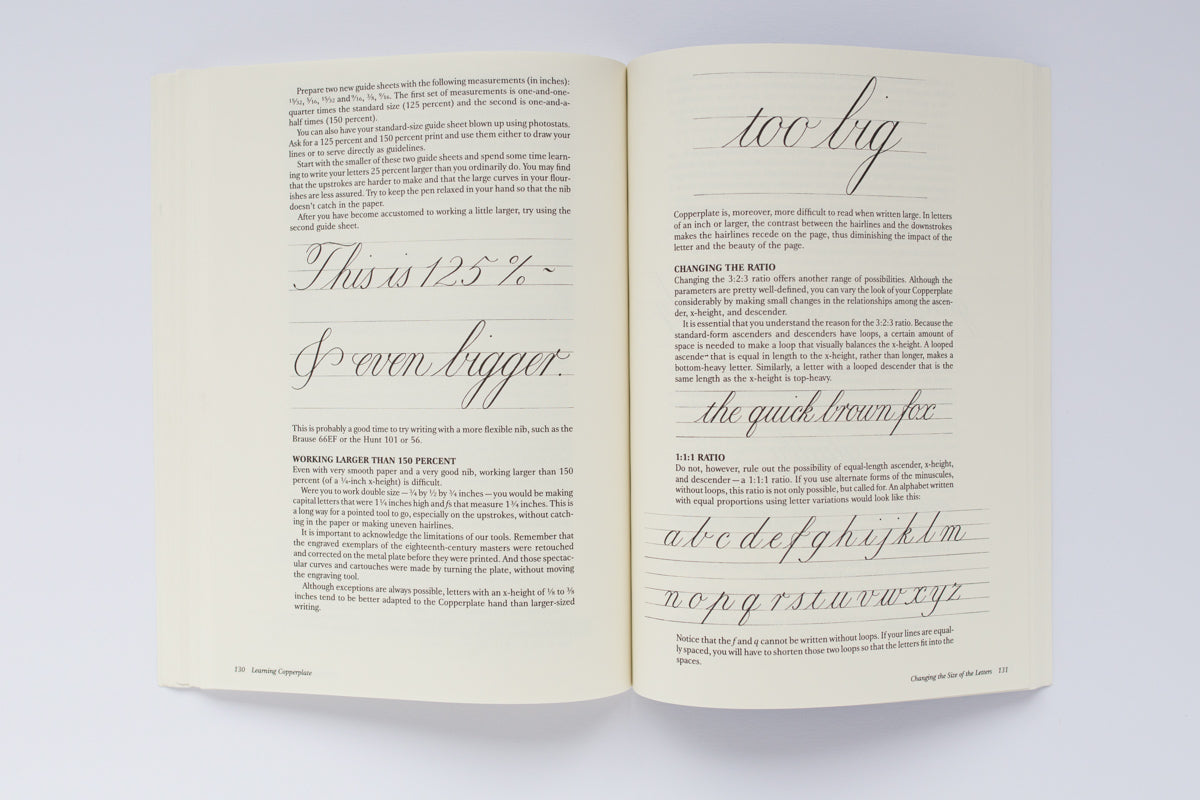 Prepare two new guide sheets with the following measurements (in inches):
¹⁵⁄₃₂, ⁵⁄₁₆, ¹⁵⁄₃₂ and ⁹⁄₁₆, ³⁄₈, ⁹⁄₁₆. The first set of measurements is one-and-one-
quarter times the standard size (125 percent) and the second is one-and-a-
half times (150 percent).
You can also have your standard-size guide sheet blown up using photostats.
Ask for a 125 percent and 150 percent print and use them either to draw your
lines or to serve directly as guidelines.
Start with the smaller of these two guide sheets and spend some time learn-
ing to write your letters 25 percent larger than you ordinarily do. You may find
that the upstrokes are harder to make and that the large curves in your flour-
ishes are less assured. Try to keep the pen relaxed in your hand so that the nib
doesn't catch in the paper.
After you have become accustomed to working a little larger, try using the
second guide sheet.
This is 125% ~
& even bigger.
This is probably a good time to try writing with a more flexible nib, such as the
Brause 66EF or the Hunt 101 or 56.
WORKING LARGER THAN 150 PERCENT
Even with very smooth paper and a very good nib, working larger than 150
percent (of a ¼-inch x-height) is difficult.
Were you to work double size — ¾ by ½ by ¾ inches — you would be making
capital letters that were 1¼ inches high and fs that measure 1¾ inches. This is
a long way for a pointed tool to go, especially on the upstrokes, without catch-
ing in the paper or making uneven hairlines.
It is important to acknowledge the limitations of our tools. Remember that
the engraved exemplars of the eighteenth-century masters were retouched
and corrected on the metal plate before they were printed. And those spectac-
ular curves and cartouches were made by turning the plate, without moving
the engraving tool.
Although exceptions are always possible, letters with an x-height of ⅛ to ⅜
inches tend to be better adapted to the Copperplate hand than larger-sized
writing.
130 Learning Copperplate
too big
Copperplate is, moreover, more difficult to read when written large. In letters
of an inch or larger, the contrast between the hairlines and the downstrokes
makes the hairlines recede on the page, thus diminishing the impact of the
letter and the beauty of the page.
CHANGING THE RATIO
Changing the 3:2:3 ratio offers another range of possibilities. Although the
parameters are pretty well-defined, you can vary the look of your Copperplate
considerably by making small changes in the relationships among the ascen-
der, x-height, and descender.
It is essential that you understand the reason for the 3:2:3 ratio. Because the
standard-form ascenders and descenders have loops, a certain amount of
space is needed to make a loop that visually balances the x-height. A looped
ascender that is equal in length to the x-height, rather than longer, makes a
bottom-heavy letter. Similarly, a letter with a looped descender that is the
same length as the x-height is top-heavy.
the quick brown fox
1:1:1 RATIO
Do not, however, rule out the possibility of equal-length ascender, x-height,
and descender — a 1:1:1 ratio. If you use alternate forms of the minuscules,
without loops, this ratio is not only possible, but called for. An alphabet written
with equal proportions using letter variations would look like this:
a b c d e f g h i j k l m
n o p q r s t u v w x y z
Notice that the f and q cannot be written without loops. If your lines are equal-
ly spaced, you will have to shorten those two loops so that the letters fit into the
spaces.
Changing the Size of the Letters 131